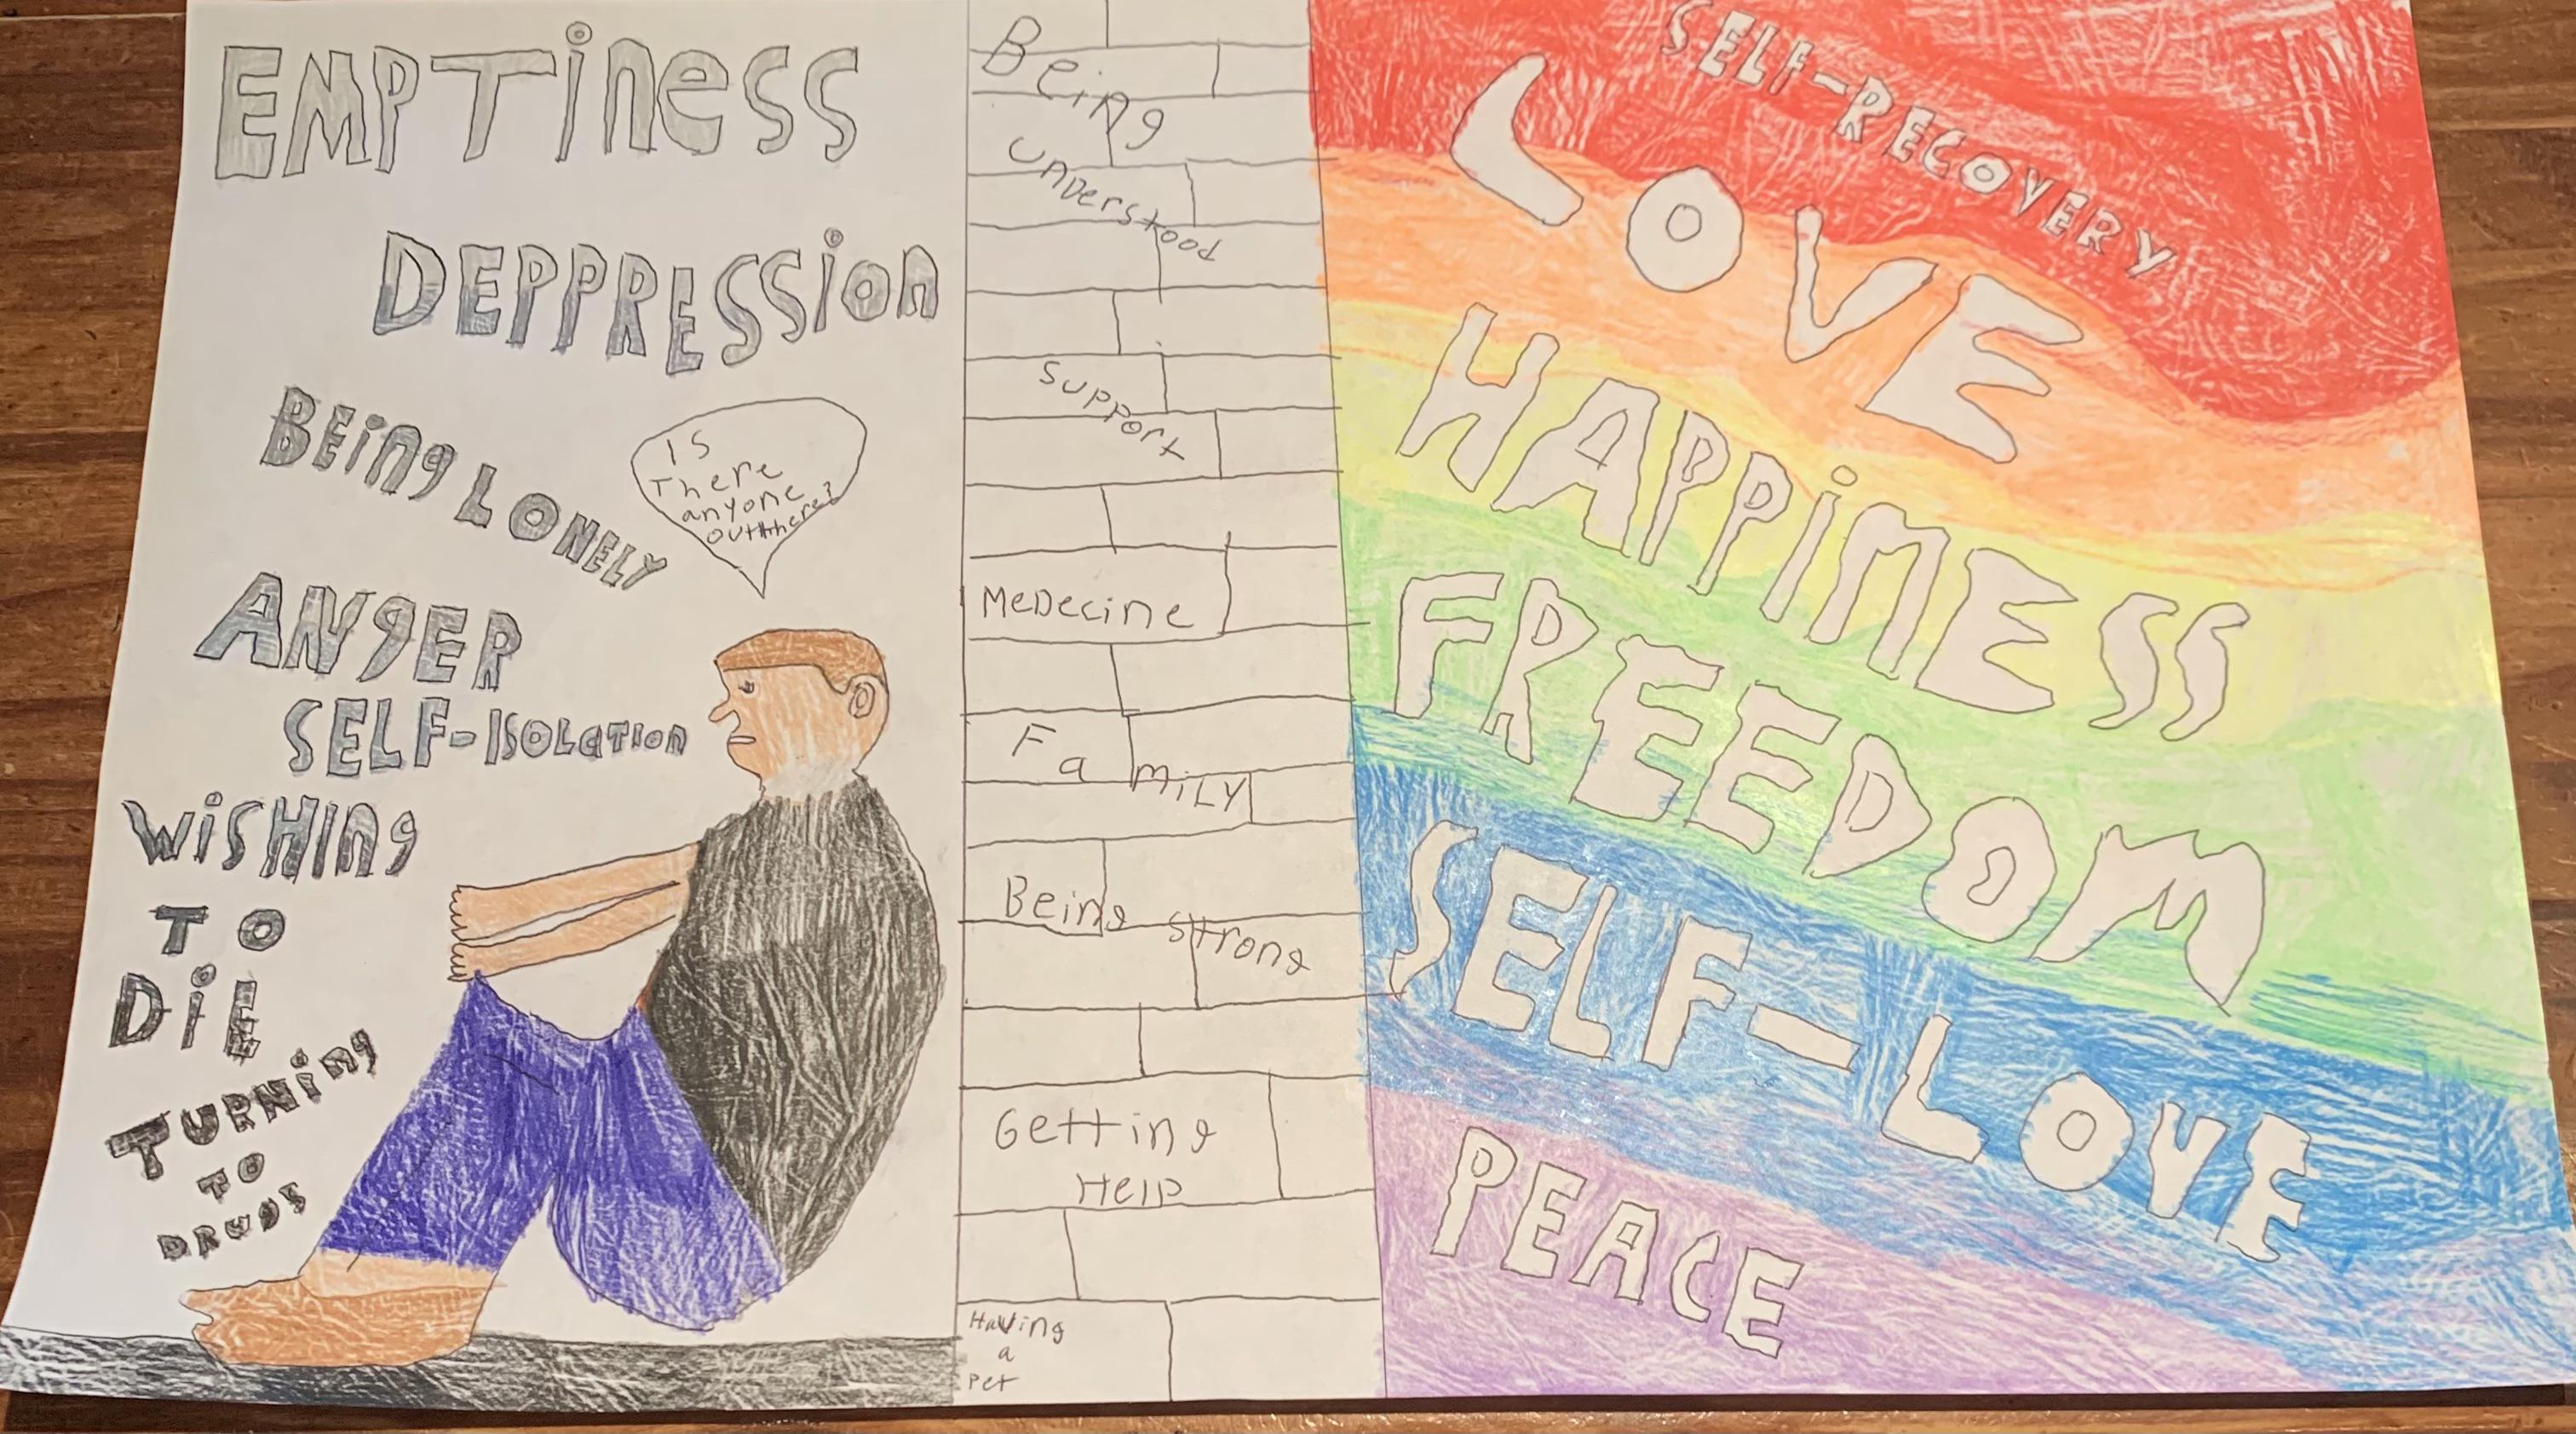 EMPTiness
DEPPRESSion
BEing LONELY
IS
There
anyone
outthere?
ANgER
SELF-ISOLaTION
WiSHINg
TO
DiE
TURNing
TO
DRUGS
Being
Understood
Support
MeDecine
FamiLY
Being strong
Getting
Help
Having
a
Pet
SELF-RECOVERY
LOVE
HAPPiNESS
FREEDOM
SELF-LOVE
PEACE